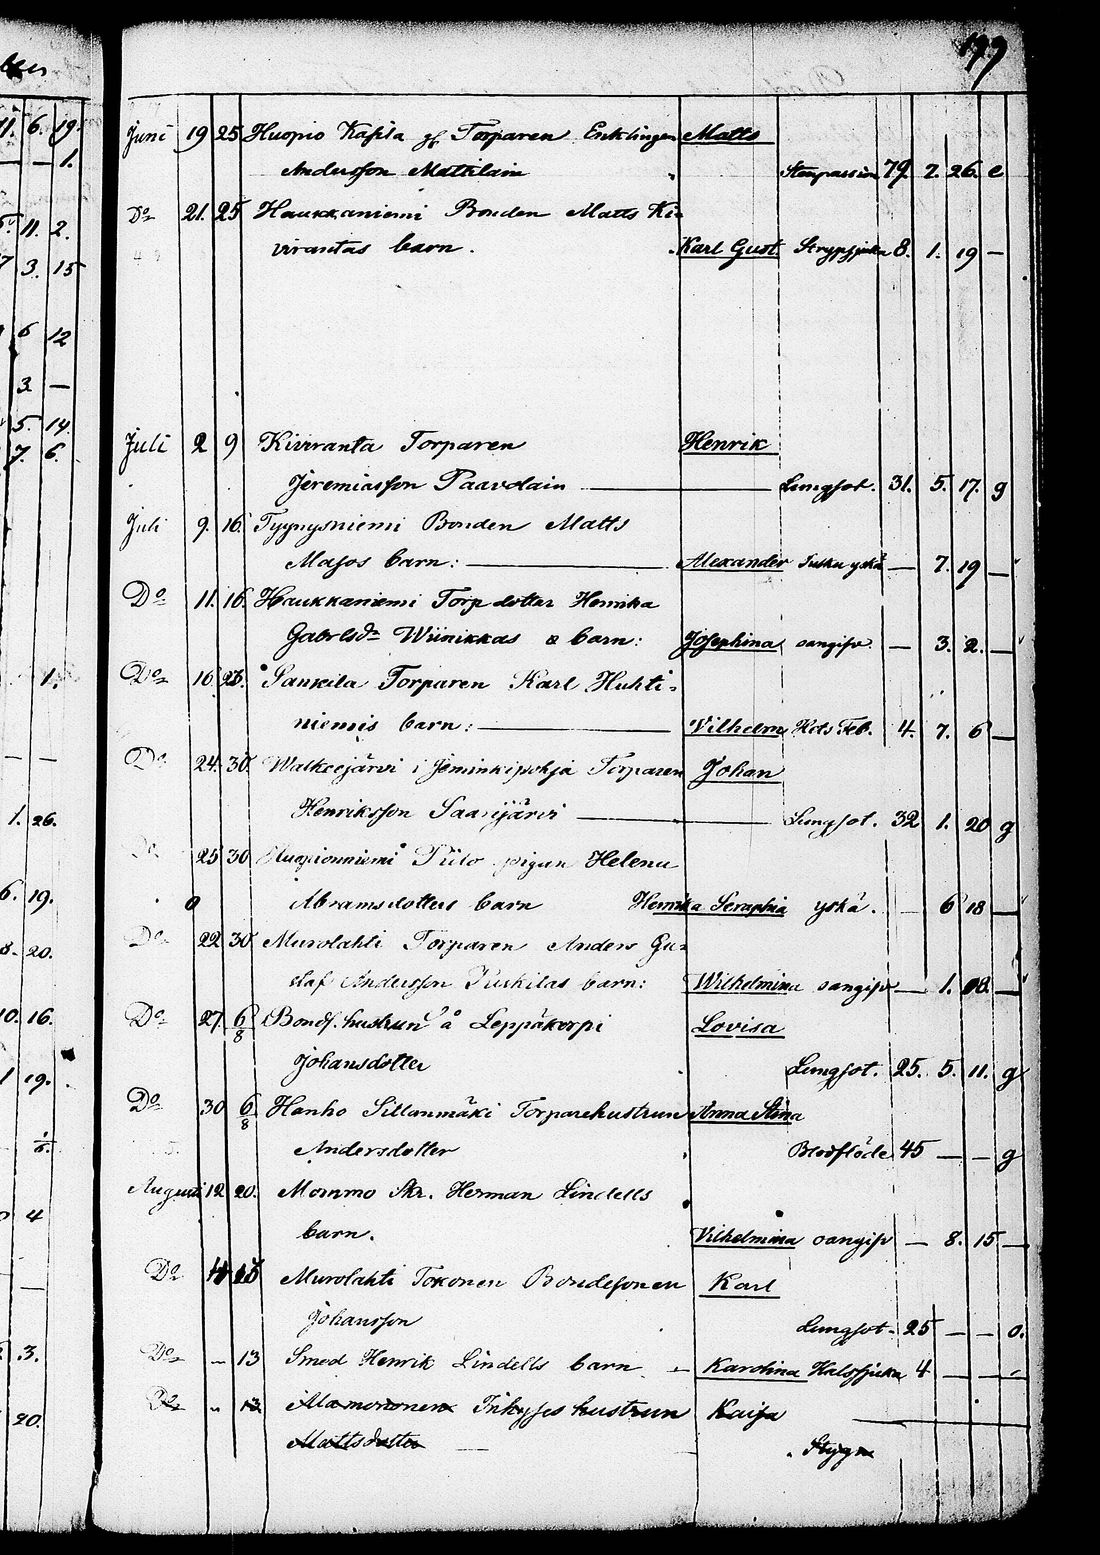 199
Juni 19 25 Huopio Kassila gf Torparen Enklingen Matts
Andersson Mattilain 79 2. 26. e
Do 21. 25 Haukkaniemi Bonden Matts Ki-
virantas barn. Karl Gust. Strypsjuka 8. 1. 19 —
Juli 2 9 Kiviranta Torparen Henrik
Jeremiasson Paavolain — Lungsot. 31. 5. 17. g
Juli 9. 16. Tyynysniemi Bonden Matts
Masos barn: — Alexander yskä — 7. 19 —
Do 11. 16. Haukkaniemi Torp dotter Henrika
Gabrlsdr Wiinikkas o barn: Josephina oangifv. — 3. 2. —
Do 16. Sankila Torparen Karl Huhti-
niemis barn: — Vilhelm Hets Feb. 4. 7. 6 —
Do 24. 30. Walkeejärvi i Jeminkipohja Torparen Johan
Henriksson Saarijärvi — Lungsot. 32 1. 20 g
Do 25 30 Huopionniemi Piilo pigan Helena
Abramsdotters barn Henrika Seraphia yskä. — 6 18 —
Do 22 30 Murolahti Torparen Anders Gu-
staf Andersson Puskilas barn: Wilhelmina oangifv — 1. 18. —
Do 27. 6/8 Bondf. hustrun å Leppäkorpi Lovisa
Johansdotter Lungsot. 25. 5. 11. g
Do 30 6/8 Hanho Sillanmäki Torparehustrun Anna Stina
Andersdotter Blodflöde 45 — — g
Augusti 12 20. Mommo Skr. Herman Lindells
barn. Vilhelmina oangifv — 8. 15 —
Do Murolahti Tokonen Bondesonen Karl
Johansson Lungsot. 25 — — o.
Do " 13 Smed Henrik Lindells barn — Karolina Halssjuka 4 — — —
Do " 13. hustrun Kaisa
Mattsdotter — Stygn